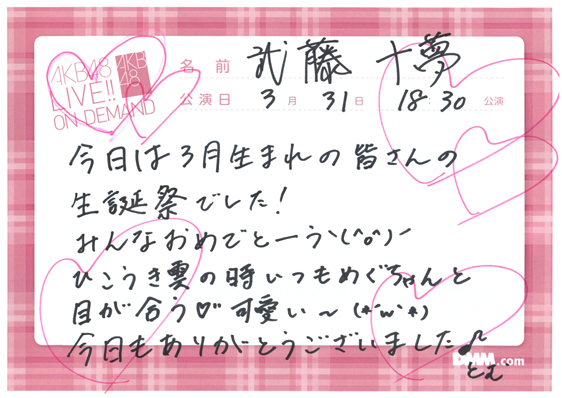 AKB48
LIVE!!
ON DEMAND
AKB
48
名前 武藤 十夢
公演日 3月 31日 18:30 公演
今日は3月生まれの皆さんの
生誕祭でした!
みんなおめでとーうヽ(^o^)ノ
ひこうき雲の時いつもめぐちゃんと
目が合う♡♡可愛い〜(*´ω`*)
今日もありがとうございました♪
DMM.com
とむ